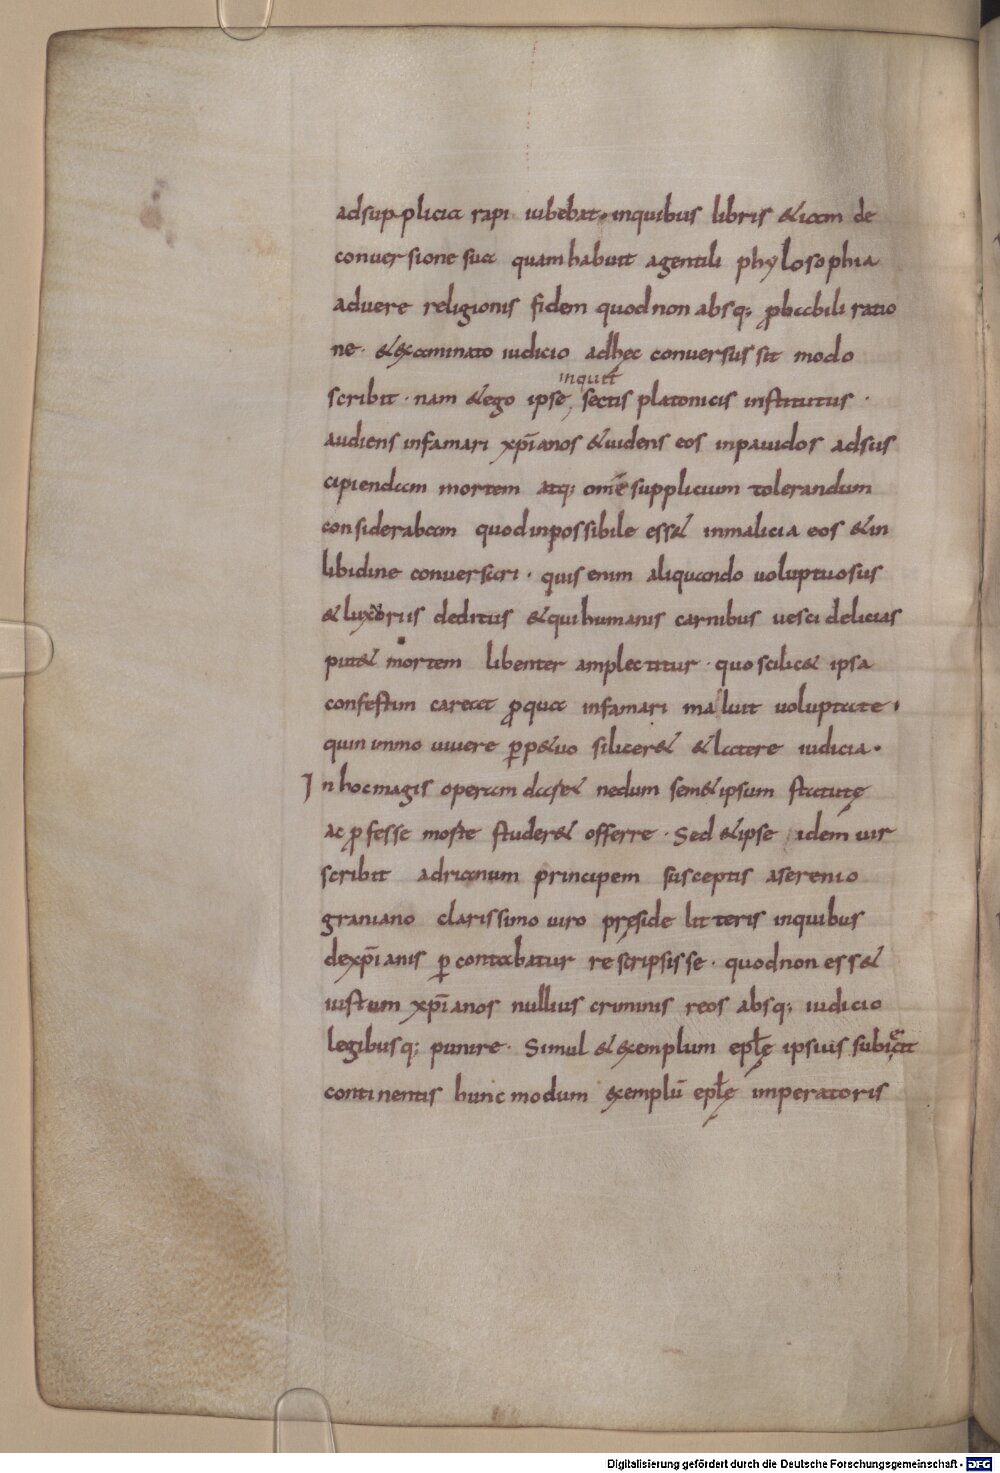 adsupplicia rapi iubebat. inquibus libris &iam de
conuersione sua quam habuit agentili phylosophia
aduere religionis fidem quod non absq; ꝓbabili ratio
ne. &examinato iudicio adhęc conuersus sit modo
inquit
scribit. nam &ego ipse, sectis platonicis institutus.
audiens infamari xp̅ianos &uidens eos inpauidos adsus
cipiendam mortem atq; om̅e supplicium tolerandum
considerabam quod inpossibile ess& inmalicia eos &in
libidine conuersari. quis enim aliquando uoluptuosus
&luxoriis deditus &qui humanis carnibus uesci delicias
put& mortem libenter amplectitur. quo scilic& ipsa
confestim careat ꝓqua infamari maluit uoluptate.
quin immo uiuere ꝑp&uo silicer& &latere iudicia.
In hoc magis operam das& nedum sem&ipsum statutę
ac ꝓfesse moste studer& offerre. Sed &ipse idem uir
scribit adrianum principem susceptis aserenio
graniano clarissimo uiro pręside litteris inquibus
dexp̅ianis ꝑcontabatur rescripsisse. quod non ess&
iustum xp̅ianos nullius criminis reos absq; iudicio
legibusq; punire. Simul &exemplum epl̅ę ipsuis subięcit
continentis hunc modum exemplu̅ epl̅ę imperatoris
Digitalisierung gefördert durch die Deutsche Forschungsgemeinschaft - DFG